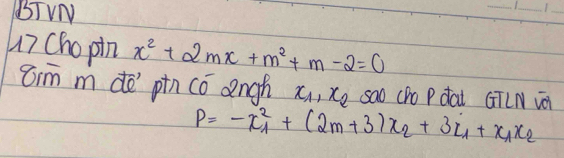 BTVN
1) Cho ptr x² + 2mx + m² + m - 2 = 0
Tìm m để ptr có 2ngh x₁, x₂ sao cho P đạt GTLN với
P = -x₁² + (2m+3)x₂ + 3x₁ + x₁x₂